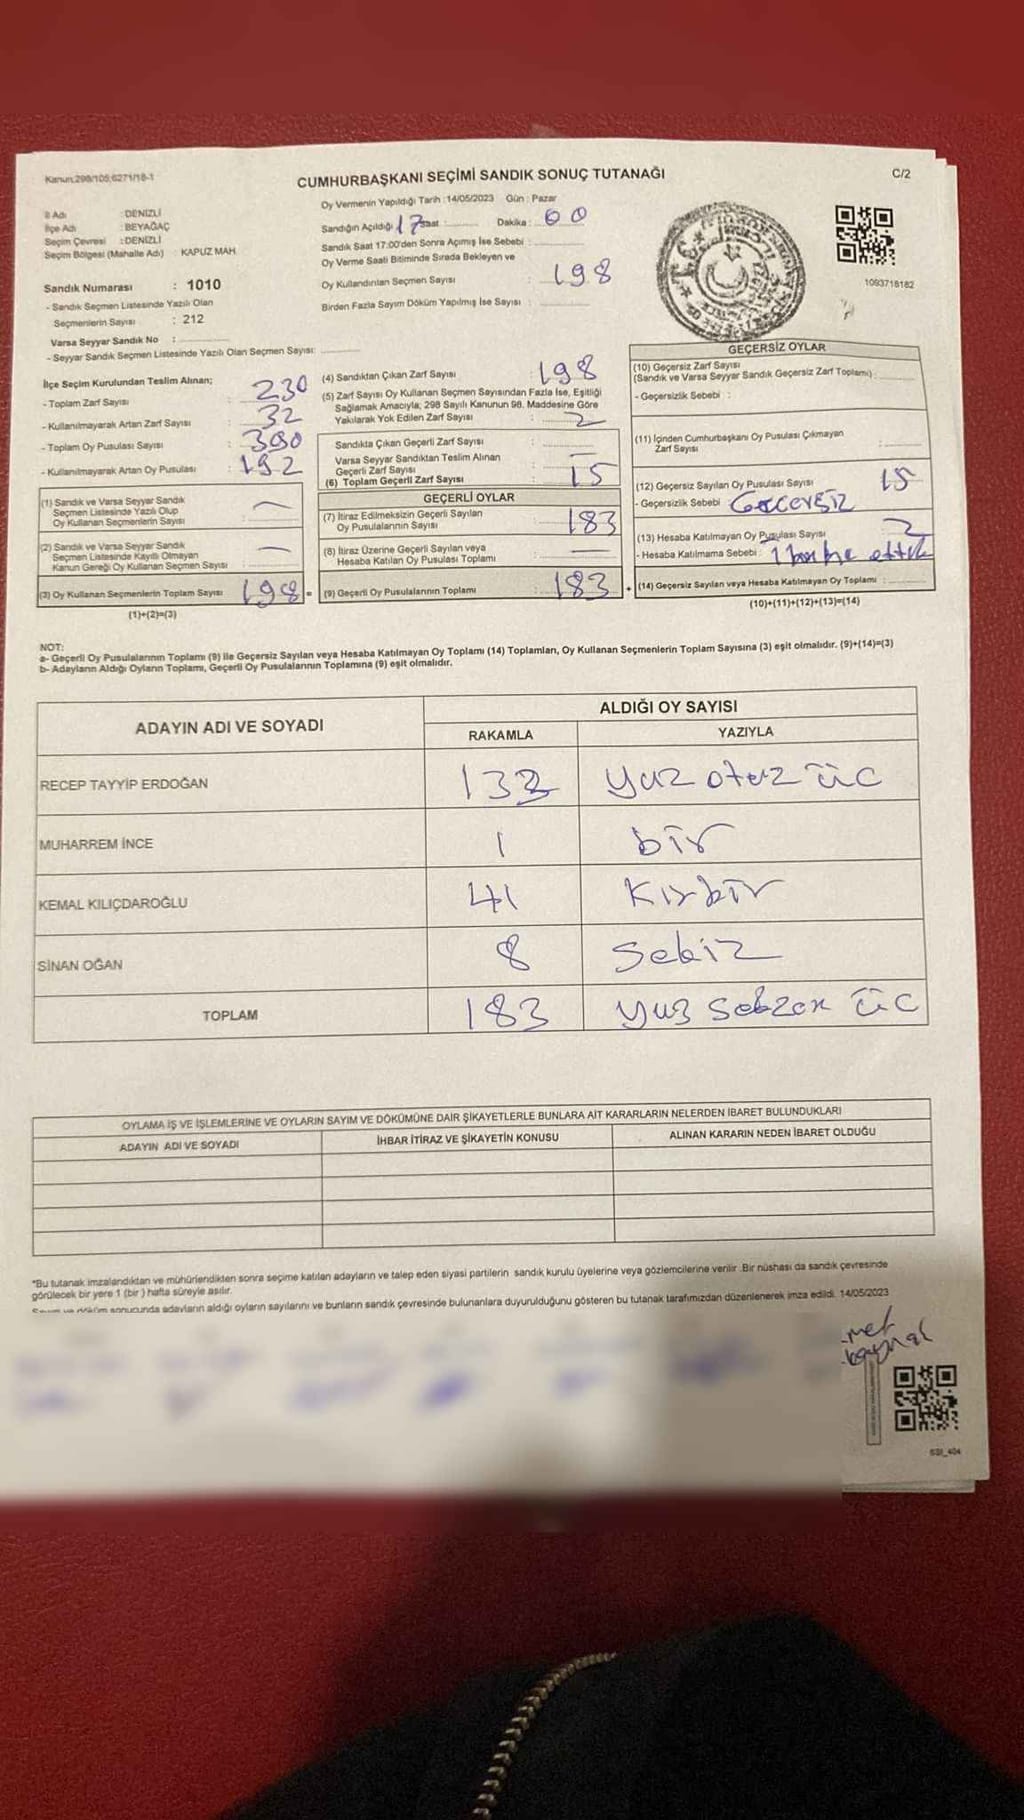 Kanun:298/105;6271/18-1
CUMHURBAŞKANI SEÇİMİ SANDIK SONUÇ TUTANAĞI
C/2
İl Adı : DENİZLİ
İlçe Adı : BEYAĞAÇ
Seçim Çevresi : DENİZLİ
Seçim Bölgesi (Mahalle Adı) : KAPUZ MAH.
Sandık Numarası : 1010
- Sandık Seçmen Listesinde Yazılı Olan
Seçmenlerin Sayısı : 212
Varsa Seyyar Sandık No :
- Seyyar Sandık Seçmen Listesinde Yazılı Olan Seçmen Sayısı:
Oy Vermenin Yapıldığı Tarih : 14/05/2023 Gün : Pazar
Sandığın Açıldığı 17 Saat : Dakika : 00
Sandık Saat 17:00'den Sonra Açımış İse Sebebi :
Oy Verme Saati Bitiminde Sırada Bekleyen ve
Oy Kullandırılan Seçmen Sayısı : 198
Birden Fazla Sayım Döküm Yapılmış İse Sayısı :
1093718182
İlçe Seçim Kurulundan Teslim Alınan;
- Toplam Zarf Sayısı : 230
- Kullanılmayarak Artan Zarf Sayısı : 32
- Toplam Oy Pusulası Sayısı : 390
- Kullanılmayarak Artan Oy Pusulası : 192
(1) Sandık ve Varsa Seyyar Sandık
Seçmen Listesinde Yazılı Olup
Oy Kullanan Seçmenlerin Sayısı : —
(2) Sandık ve Varsa Seyyar Sandık
Seçmen Listesinde Kayıtlı Olmayan
Kanun Gereği Oy Kullanan Seçmen Sayısı : —
(3) Oy Kullanan Seçmenlerin Toplam Sayısı 198 =
(1)+(2)=(3)
(4) Sandıktan Çıkan Zarf Sayısı : 198
(5) Zarf Sayısı Oy Kullanan Seçmen Sayısından Fazla İse, Eşitliği
Sağlamak Amacıyla, 298 Sayılı Kanunun 98. Maddesine Göre
Yakılarak Yok Edilen Zarf Sayısı : 2
Sandıkta Çıkan Geçerli Zarf Sayısı :
Varsa Seyyar Sandıktan Teslim Alınan
Geçerli Zarf Sayısı : —
(6) Toplam Geçerli Zarf Sayısı : 15
GEÇERLİ OYLAR
(7) İtiraz Edilmeksizin Geçerli Sayılan
Oy Pusulalarının Sayısı : 183
(8) İtiraz Üzerine Geçerli Sayılan veya
Hesaba Katılan Oy Pusulası Toplamı : —
(9) Geçerli Oy Pusulalarının Toplamı : 183 +
GEÇERSİZ OYLAR
(10) Geçersiz Zarf Sayısı
(Sandık ve Varsa Seyyar Sandık Geçersiz Zarf Toplamı) :
- Geçersizlik Sebebi :
(11) İçinden Cumhurbaşkanı Oy Pusulası Çıkmayan
Zarf Sayısı :
(12) Geçersiz Sayılan Oy Pusulası Sayısı : 15
- Geçersizlik Sebebi : Geçersiz
(13) Hesaba Katılmayan Oy Pusulası Sayısı 2
- Hesaba Katılmama Sebebi :
(14) Geçersiz Sayılan veya Hesaba Katılmayan Oy Toplamı :
(10)+(11)+(12)+(13)=(14)
NOT:
a- Geçerli Oy Pusulalarının Toplamı (9) ile Geçersiz Sayılan veya Hesaba Katılmayan Oy Toplamı (14) Toplamları, Oy Kullanan Seçmenlerin Toplam Sayısına (3) eşit olmalıdır. (9)+(14)=(3)
b- Adayların Aldığı Oyların Toplamı, Geçerli Oy Pusulalarının Toplamına (9) eşit olmalıdır.
ADAYIN ADI VE SOYADI
ALDIĞI OY SAYISI
RAKAMLA YAZIYLA
RECEP TAYYİP ERDOĞAN 133 yüz otuz üç
MUHARREM İNCE 1 bir
KEMAL KILIÇDAROĞLU 41 Kırbir
SİNAN OĞAN 8 Sekiz
TOPLAM 183 yüz seksen üç
OYLAMA İŞ VE İŞLEMLERİNE VE OYLARIN SAYIM VE DÖKÜMÜNE DAİR ŞİKAYETLERLE BUNLARA AİT KARARLARIN NELERDEN İBARET BULUNDUKLARI
ADAYIN ADI VE SOYADI İHBAR İTİRAZ VE ŞİKAYETİN KONUSU ALINAN KARARIN NEDEN İBARET OLDUĞU
*Bu tutanak imzalandıktan ve mühürlendikten sonra seçime katılan adayların ve talep eden siyasi partilerin sandık kurulu üyelerine veya gözlemcilerine verilir. Bir nüshası da sandık çevresinde
görülecek bir yere 1 (bir) hafta süreyle asılır.
Sayım ve döküm sonucunda adayların aldığı oyların sayılarını ve bunların sandık çevresinde bulunanlara duyurulduğunu gösteren bu tutanak tarafımızdan düzenlenerek imza edildi. 14/05/2023